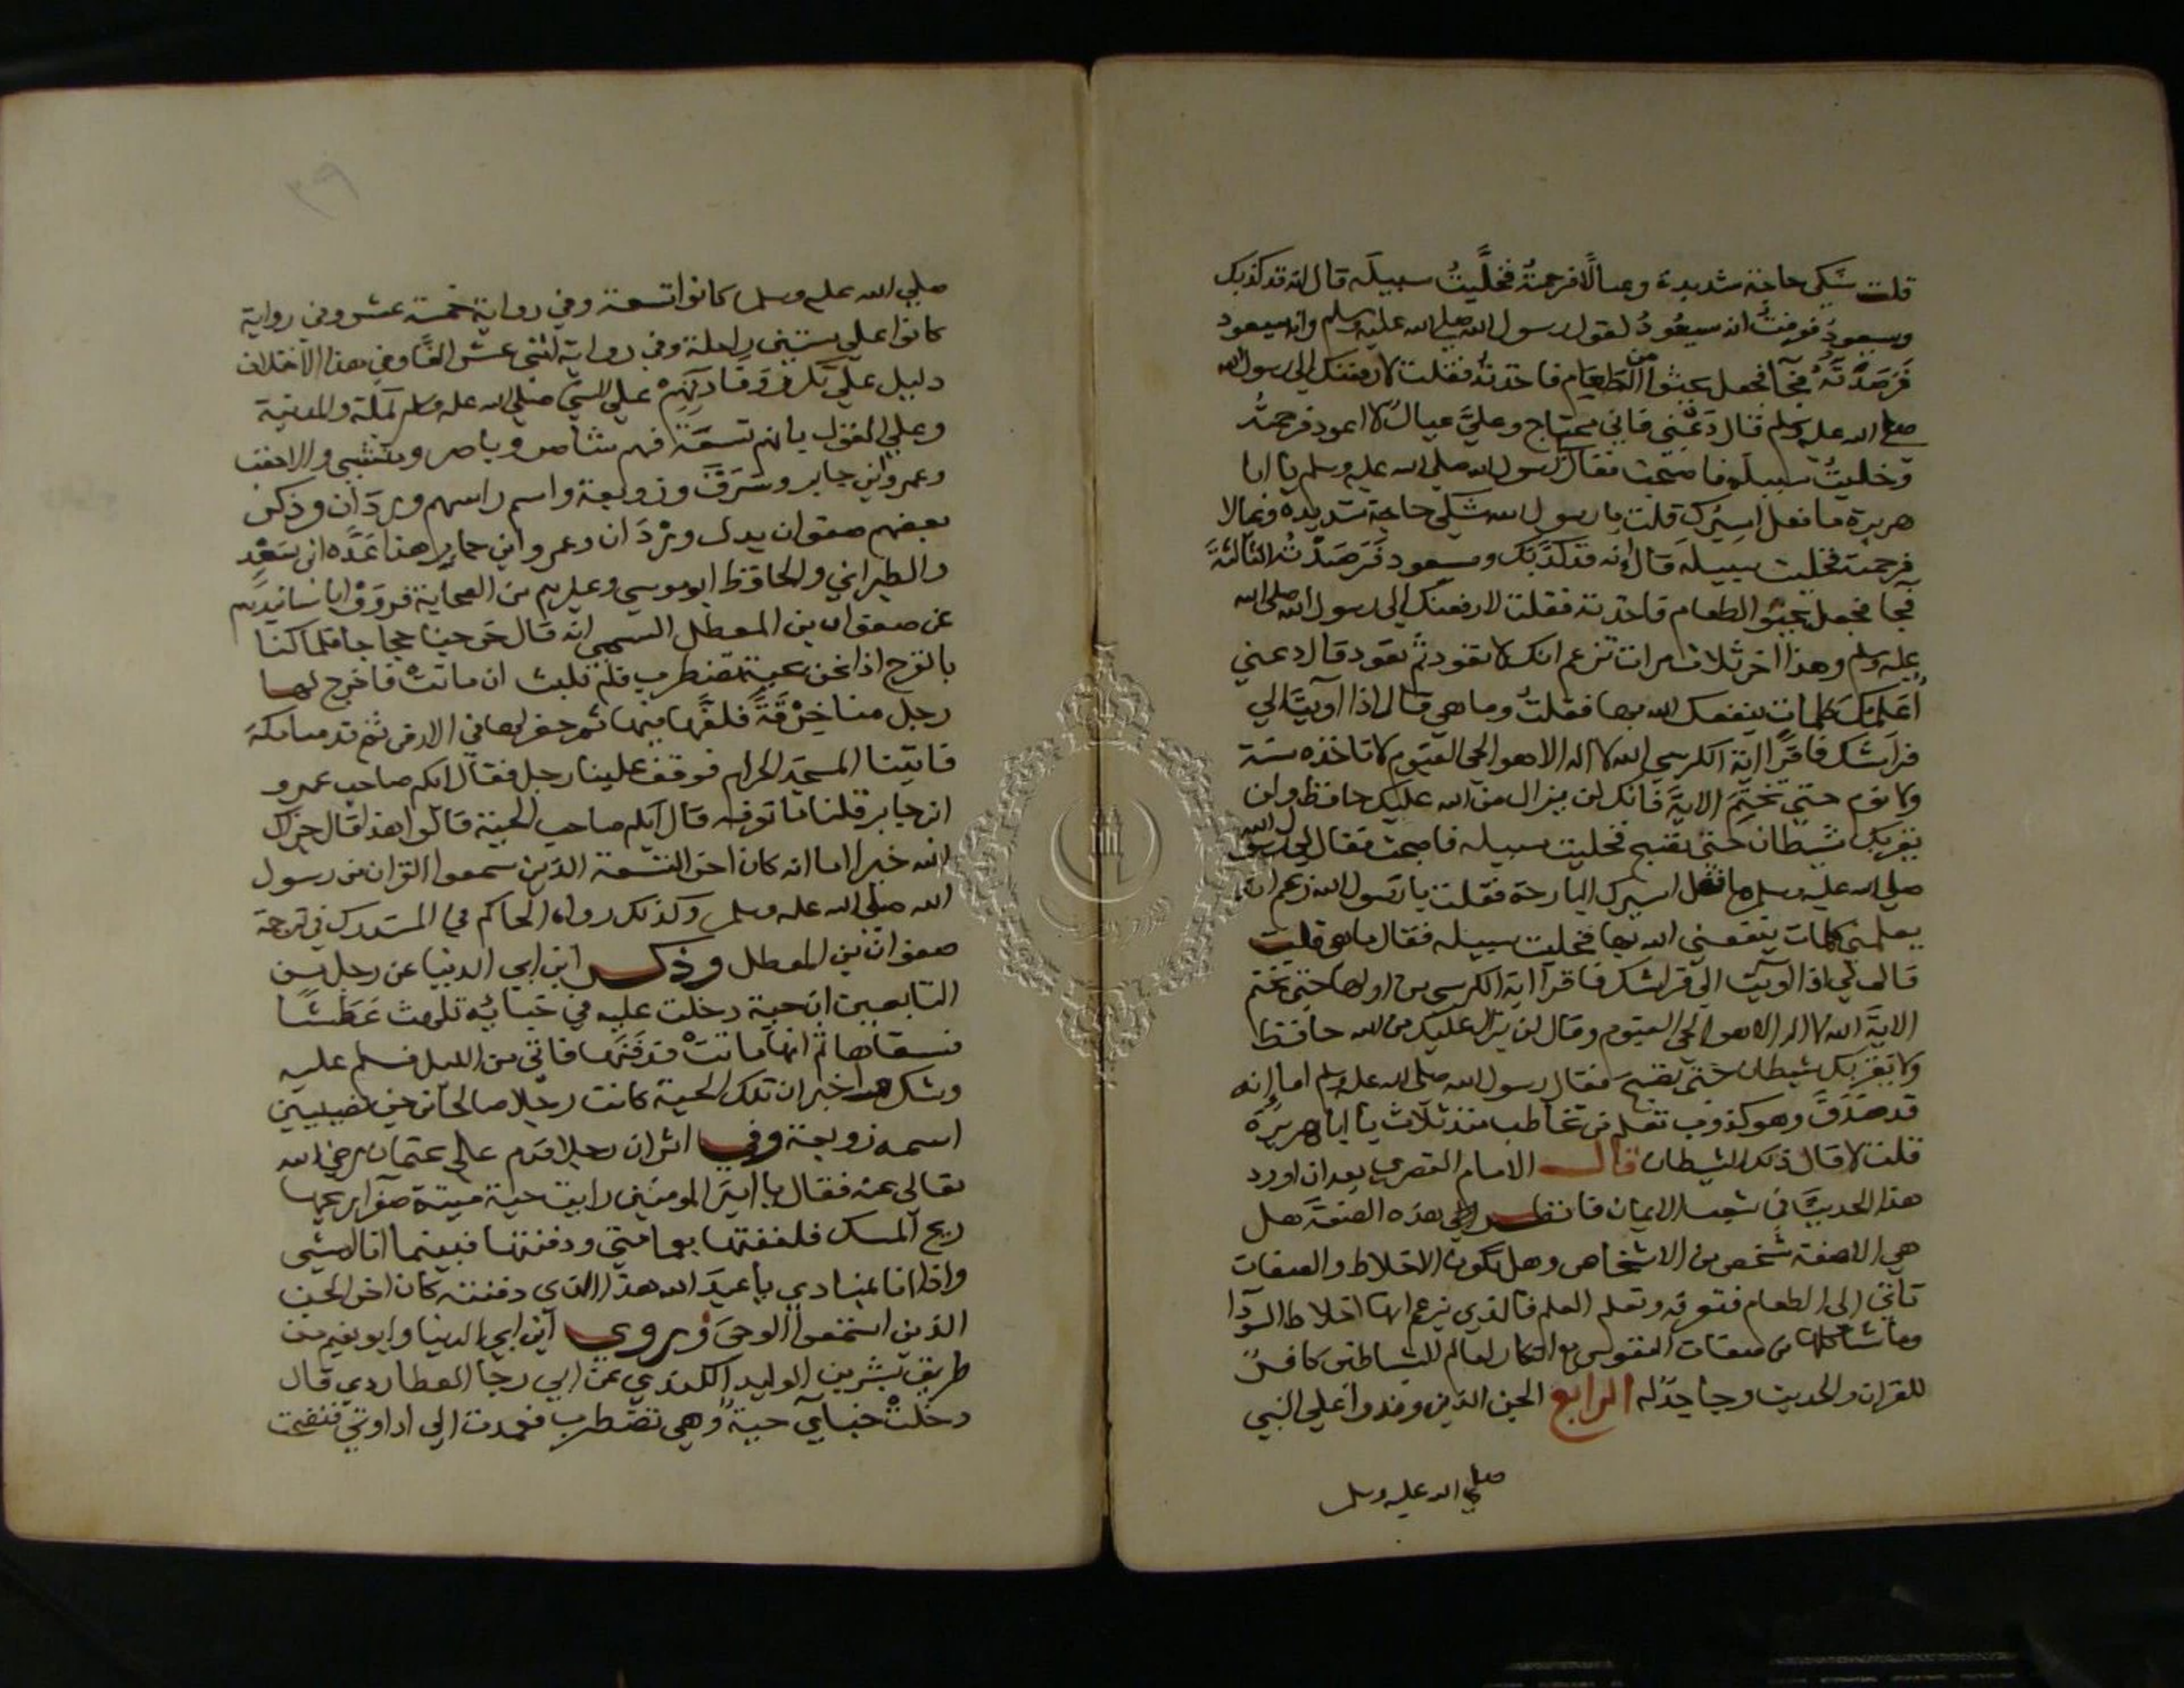 قلت شكى حاجة شديدة وعيالا فرحمتُه فخلَّيتُ سبيلَه قال انه قد كذبك
وسيعود فعرفتُ انه سيعُودُ لقول رسول الله صلى الله عليه وسلم وانه سيعود
فَرَصَدْتُهُ فجآ فجعل يحثوا من الطعَام فاخذته فقلت لارفعنك الى رسول الله
صلى الله عليه وسلم قال دَعْنى فانى محتاج وعليَّ عيال لا اعود فرحمتُه
وخليتُ سبيلَه فاصبحت فقال رسول الله صلى الله عليه وسلم يا ابا
هريرة ما فعل اسيرُك قلت يا رسول الله شكى حاجة شديدة وعيالا
فرحمته فخليت سبيلَه قال انه قد كذَبَك وسيعود فَرَصَدْتُه الثالثةَ
فجآ فجعل يحثو الطعام فاخذته فقلت لارفعنك الى رسول الله صلى الله
عليه وسلم وهذا اخر ثلاث مرات تزعم انك لا تعود ثم تعود قال دعنى
اُعَلمْك كلمات ينفعك الله بها فقلتُ وما هى قال اذا آويتَ الى
فراشك فاقرا اية الكرسى الله لا اله الا هو الحى القيوم لا تاخذه سنة
ولا نوم حتى تختِمَ الايةَ فانك لن يزال من الله عليك حافظ ولن
يقربك شيطان حتى تصبح فخليت سبيله فاصبحت فقال لى رسول الله
صلى الله عليه وسلم ما فعل اسيرك البارحة فقلت يا رسول الله زعم انه
يعلمنى كلمات ينفعنى الله بها فخليت سبيله فقال ما هى قلت
قال لى اذا اويت الى فراشك فاقرأ اية الكرسى من اولها حتى تختم
الايةَ الله لا اله الا هو الحى القيوم وقال لن يزال عليك من الله حافظ
ولا يقربك شيطان حتى تصبحَ فقال رسول الله صلى الله عليه وسلم اما إنه
قد صَدَقَ وهو كذوب تعلم من تخاطب منذ ثلاث يا ابا هريرَة
قلت لا قال ذلك الشيطان قال الامام القصرى بعد ان اورد
هذا الحديث فى شعب الايمان فانظر الى هذه الصفة هل
هى الا صفة شخص من الاشخاص وهل تكون الاخلاط والصفات
تاتى الى الطعام فتسرقه وتعلم العلم فالذى يزعم انها اخلاط السودا
وما شاكلها من صفات النفوس مع انكار العالم للشياطين كافرٌ
للقران والحديث وجاحدٌ له الرابع الجن الذين وفدوا على النبى
صلى الله عليه وسلم
صلى الله عليه وسلم كانوا تسعة وفى رواية خمسة عشر وفى رواية
كانوا على ستين راحلة وفى رواية اثنى عشر الفًا وفى هذا الاختلاف
دليل على تكرر وفادتِهم على النبى صلى الله عليه وسلم بمكة والمدينة
وعلى القول بانهم تسعَة فهم شاصر وباصر ومنشى والاحقب
وعمرو ابن جابر وسَرَقَ وزوبعة واسم راسهم وردَان وذكر
بعضهم صفوان بدل وَرْدَان وعمرو ابن جابر هذا عَدَّه ابن سَعْد
والطبرانى والحافظ ابو موسى وغيرهم من الصحابة فروَوْا باسانيدهم
عن صفوان بن المعطل السهمى انه قال خرجنا حجاجا فلما كنا
بالعرج اذا نحن بحية تضطرب فلم تلبث ان ماتتْ فاخرج لها
رجل منا خِرْقَةً فلفَّها فيها ثم حفر لها فى الارض ثم قدمنا مكة
فاتينا المسجد الحرام فوقف علينا رجل فقال ايكم صاحب عمرو
ابن جابر قلنا ما نعرفه قال ايكم صاحب الحية قالوا هذا قال جزاك
الله خيرا اما انه كان اخر التسعة الذين سمعوا القران من رسول
الله صلى الله عليه وسلم وكذلك رواه الحاكم فى المستدرك فى ترجمة
صفوان بن المعطل وذكر ابن ابى الدنيا عن رجل من
التابعين ان حية دخلت عليه فى خبائه تلهث عَطَشًا
فسقاها ثم انها ماتتْ فدَفَنَها فاتى من الليل فسلم عليه
وشكر واخبر ان تلك الحية كانت رجلا صالحا من جن نصيبين
اسمه زوبعة وفى اثر ان رجلا قدم على عثمان رضى الله
تعالى عنه فقال يا اميرَ المومنين رايت حية ميتة صفرا ريحها
ريح المسك فلففتها بعمامتى ودفنتها فبينما انا امشى
واذا انا بمنادى يا عبدَ الله هذا الذى دفنته كان اخر الجن
الذين استمعوا الوحىَ وروى ابن ابى الدنيا وابو نعيم من
طريق بشر بن الوليد الكندى عن ابى رجا العطاردى قال
دخلتْ خبآى حية وهى تضطرب فعمدت الى اداوتى فنضحت